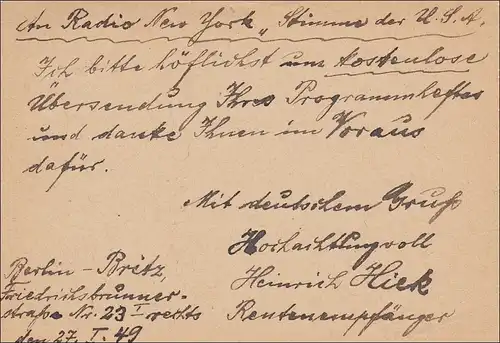 An Radio New York „Stimme der U.S.A.
Ich bitte höflichst um kostenlose
Übersendung Ihres Programmheftes
und danke Ihnen im Voraus
dafür.
Mit deutschem Gruß
Hochachtungvoll
Heinrich Hiek
Rentenempfänger
Berlin – Britz,
Friedrichsbrunner-
straße Nr. 23 I rechts
den 27. I. 49